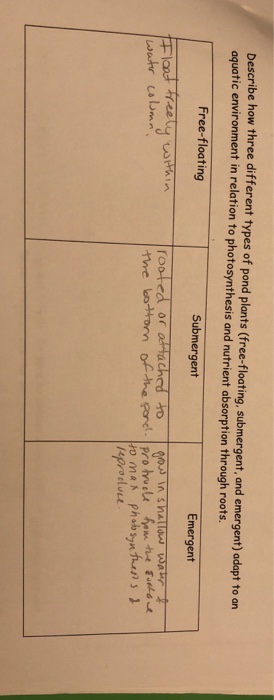 Describe how three different types of pond plants (free-floating, submergent, and emergent) adapt to an
aquatic environment in relation to photosynthesis and nutrient absorption through roots.
Free-floating
Submergent
Emergent
Float freely within
water column.
rooted or attached to
the bottom of the pond.
grow in shallow water &
protrude from the surface
to max photosynthesis &
reproduce.